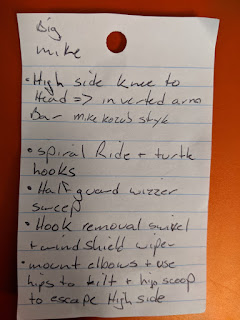 Big
mike
• High side knee to
Head => inverted arm
Bar - mike kozub style
• spiral Ride + turtle
hooks
• Half guard wizzer
sweep
• Hook removal swivel
+ wind shield wiper
• mount elbows + use
hips to tilt + hip scoop
to escape High side